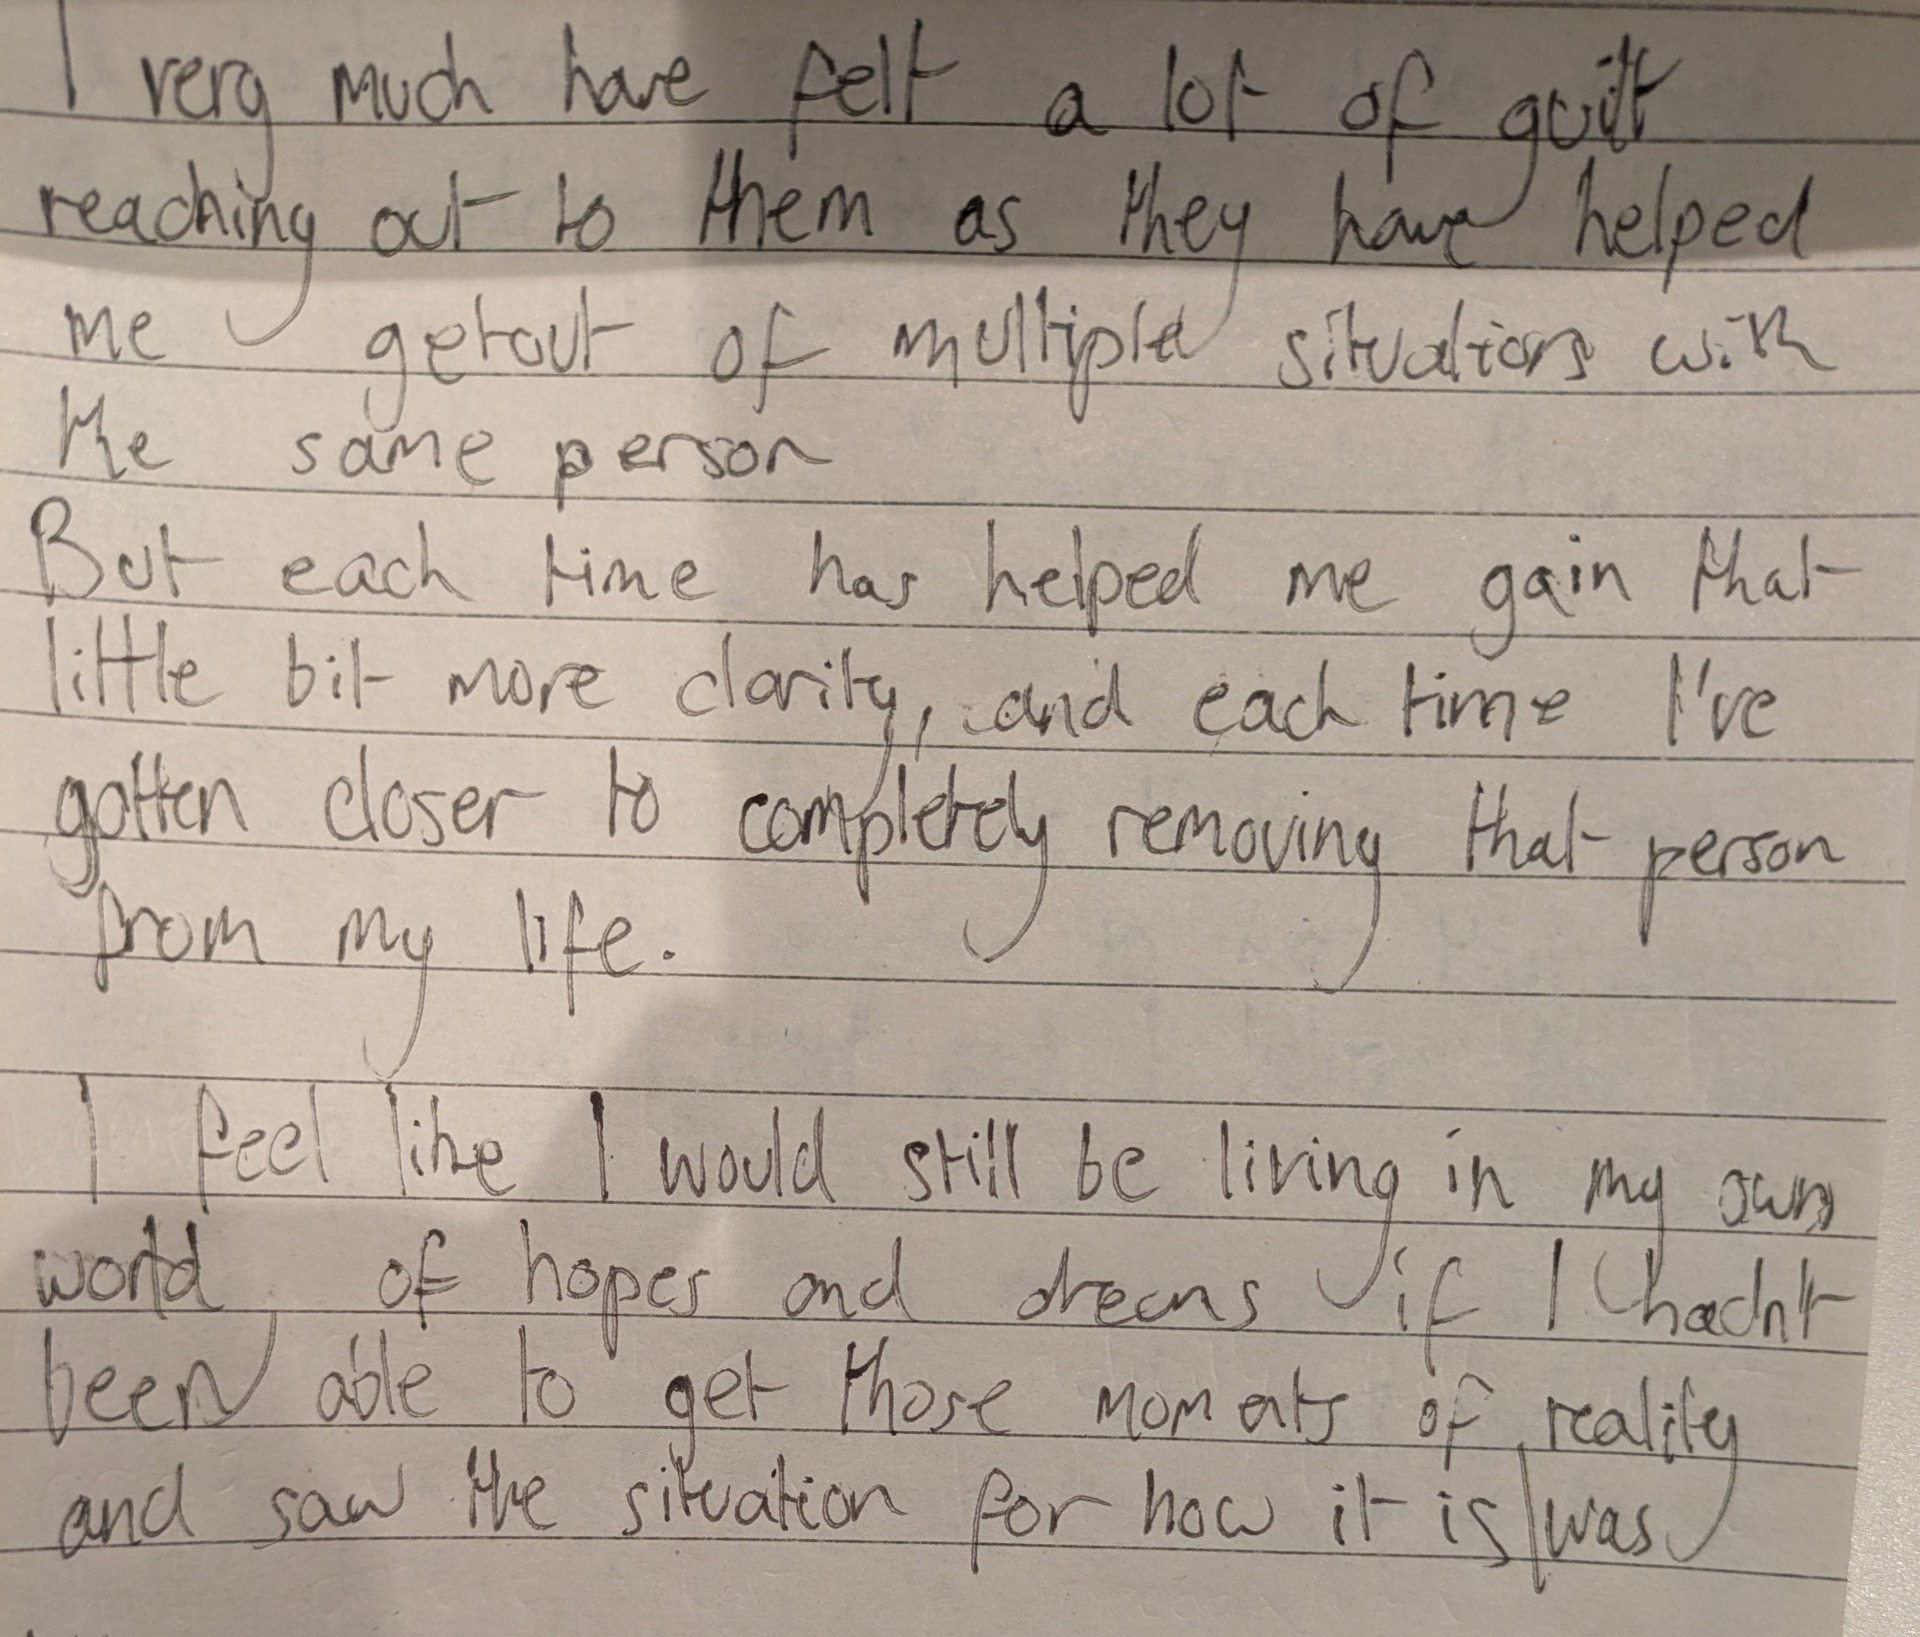 I very much have felt a lot of guilt
reaching out to them as they have helped
me getout of multiple situations with
the same person
But each time has helped me gain that
little bit more clarity, and each time I've
gotten closer to completely removing that person
from my life.
I feel like I would still be living in my own
world of hopes and dreams if I hadn't
been able to get those moments of reality
and saw the situation for how it is/was